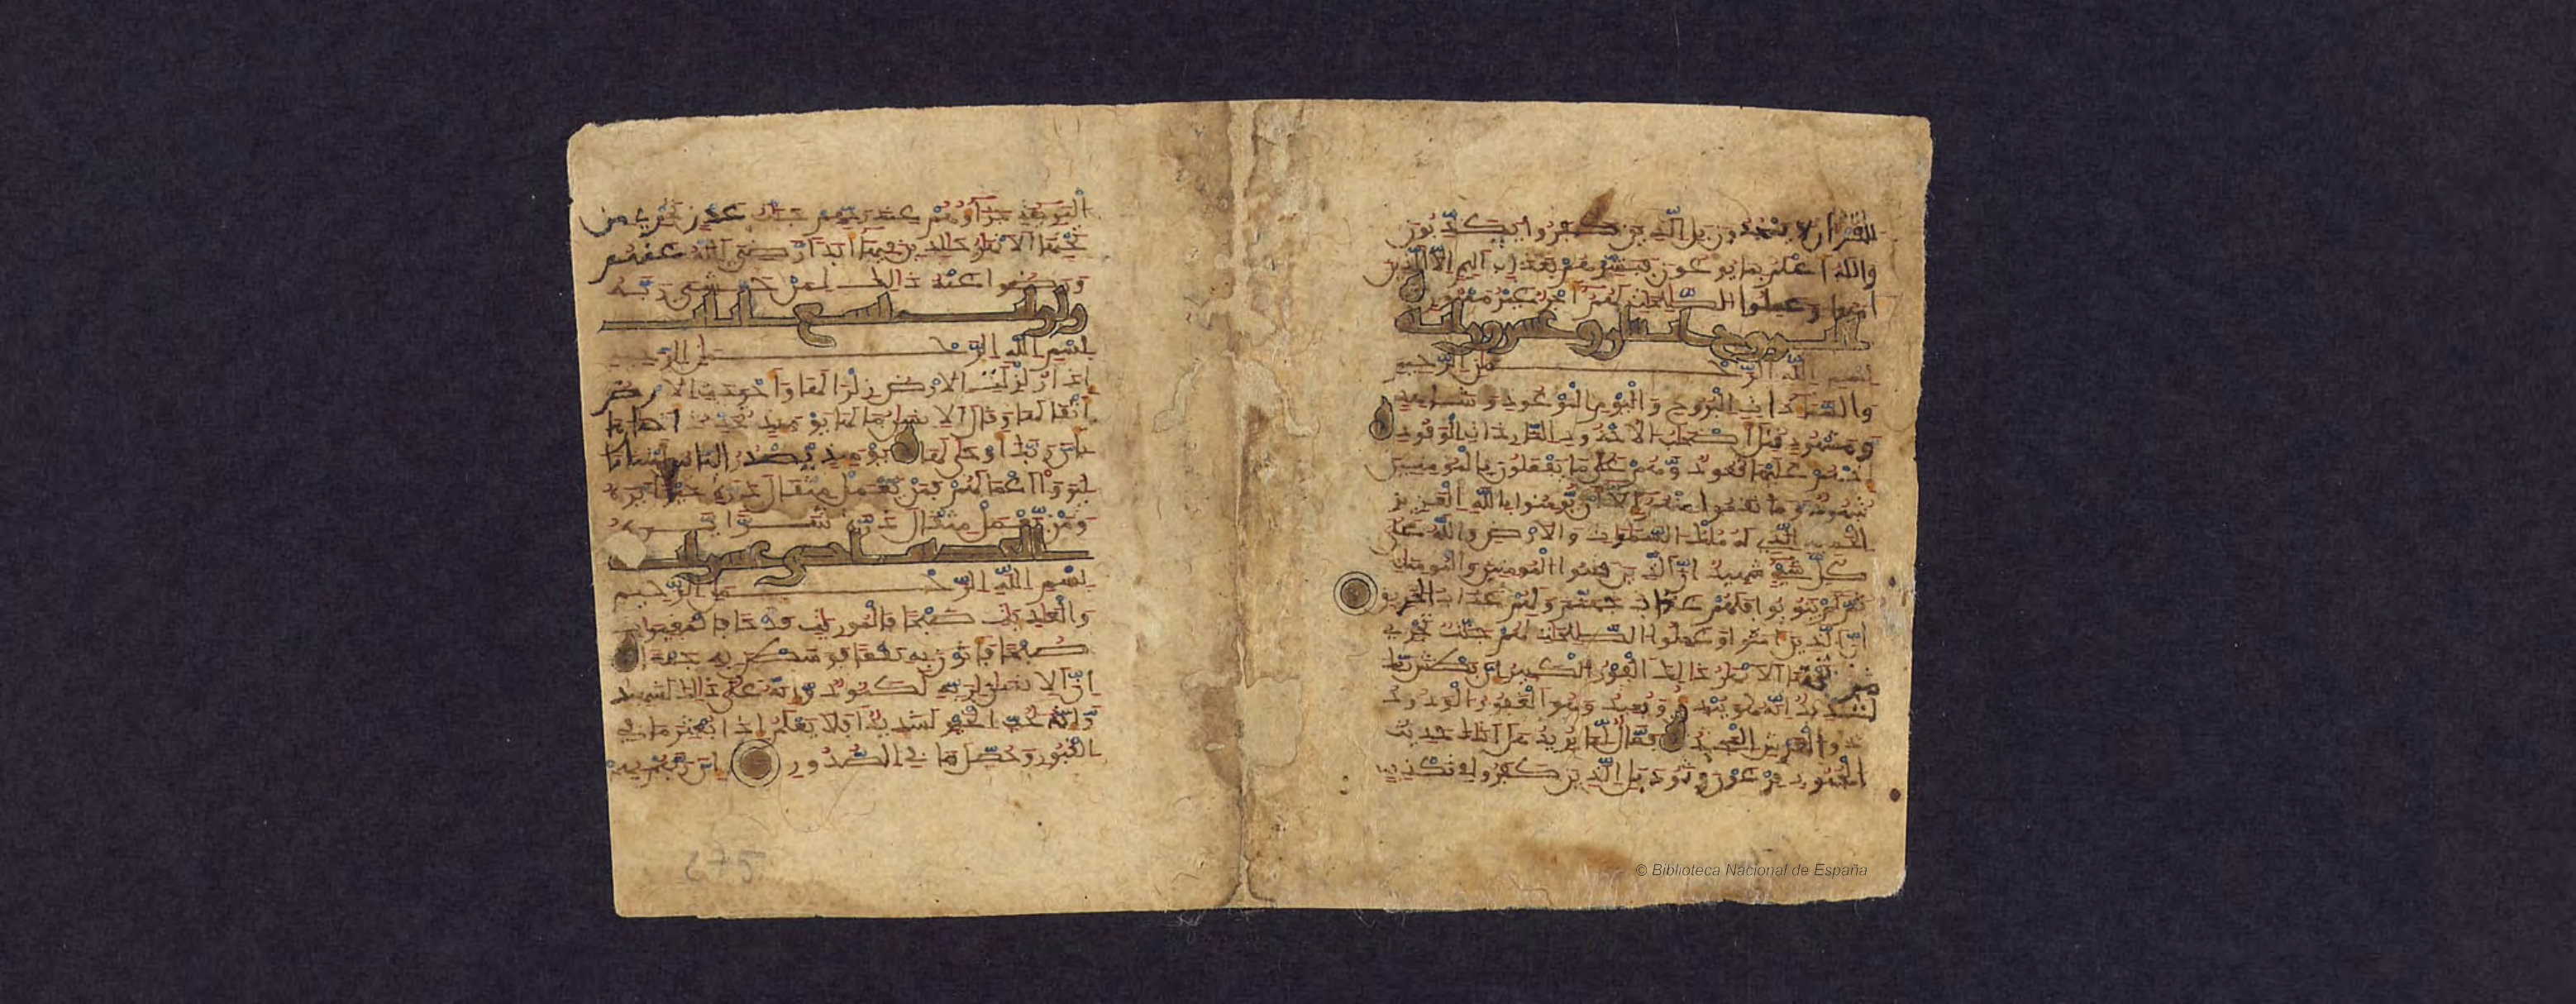 القرءان لا يسجدون بل الذين كفروا يكذبون
والله أعلم بما يوعون فبشرهم بعذاب أليم إلا الذين
ءامنوا وعملوا الصلحت لهم أجر غير ممنون
البروج اثنتان وعشرون ءاية
بسم الله الرحمن الرحيم
والسماء ذات البروج واليوم الموعود وشاهد
ومشهود قتل أصحب الأخدود النار ذات الوقود
إذ هم عليها قعود وهم على ما يفعلون بالمومنين
شهود وما نقموا منهم إلا أن يومنوا بالله العزيز
الحميد الذي له ملك السموات والأرض والله على
كل شيء شهيد إن الذين فتنوا المومنين والمومنات
ثم لم يتوبوا فلهم عذاب جهنم ولهم عذاب الحريق
إن الذين ءامنوا وعملوا الصلحت لهم جنت تجري
من تحتها الأنهار ذلك الفوز الكبير إن بطش ربك
لشديد إنه هو يبدئ ويعيد وهو الغفور الودود
ذو العرش المجيد فعال لما يريد هل أتاك حديث
الجنود فرعون وثمود بل الذين كفروا في تكذيب
البرية جزاؤهم عند ربهم جنات عدن تجري من
تحتها الأنهار خالدين فيها أبدا رضي الله عنهم
ورضوا عنه ذالك لمن خشي ربه
تسع ءايات
بسم الله الرحمن الرحيم
إذا زلزلت الأرض زلزالها وأخرجت الأرض
أثقالها وقال الإنسان ما لها يومئذ تحدث أخبارها
بأن ربك أوحى لها يومئذ يصدر الناس أشتاتا
ليروا أعمالهم فمن يعمل مثقال ذرة خيرا يره
ومن يعمل مثقال ذرة شرا يره
إحدى عشرة ءاية
بسم الله الرحمن الرحيم
والعاديات ضبحا فالموريات قدحا فالمغيرات
صبحا فأثرن به نقعا فوسطن به جمعا
إن الإنسان لربه لكنود وإنه على ذلك لشهيد
وإنه لحب الخير لشديد أفلا يعلم إذا بعثر ما في
القبور وحصل ما في الصدور إن ربهم بهم
275
© Biblioteca Nacional de España